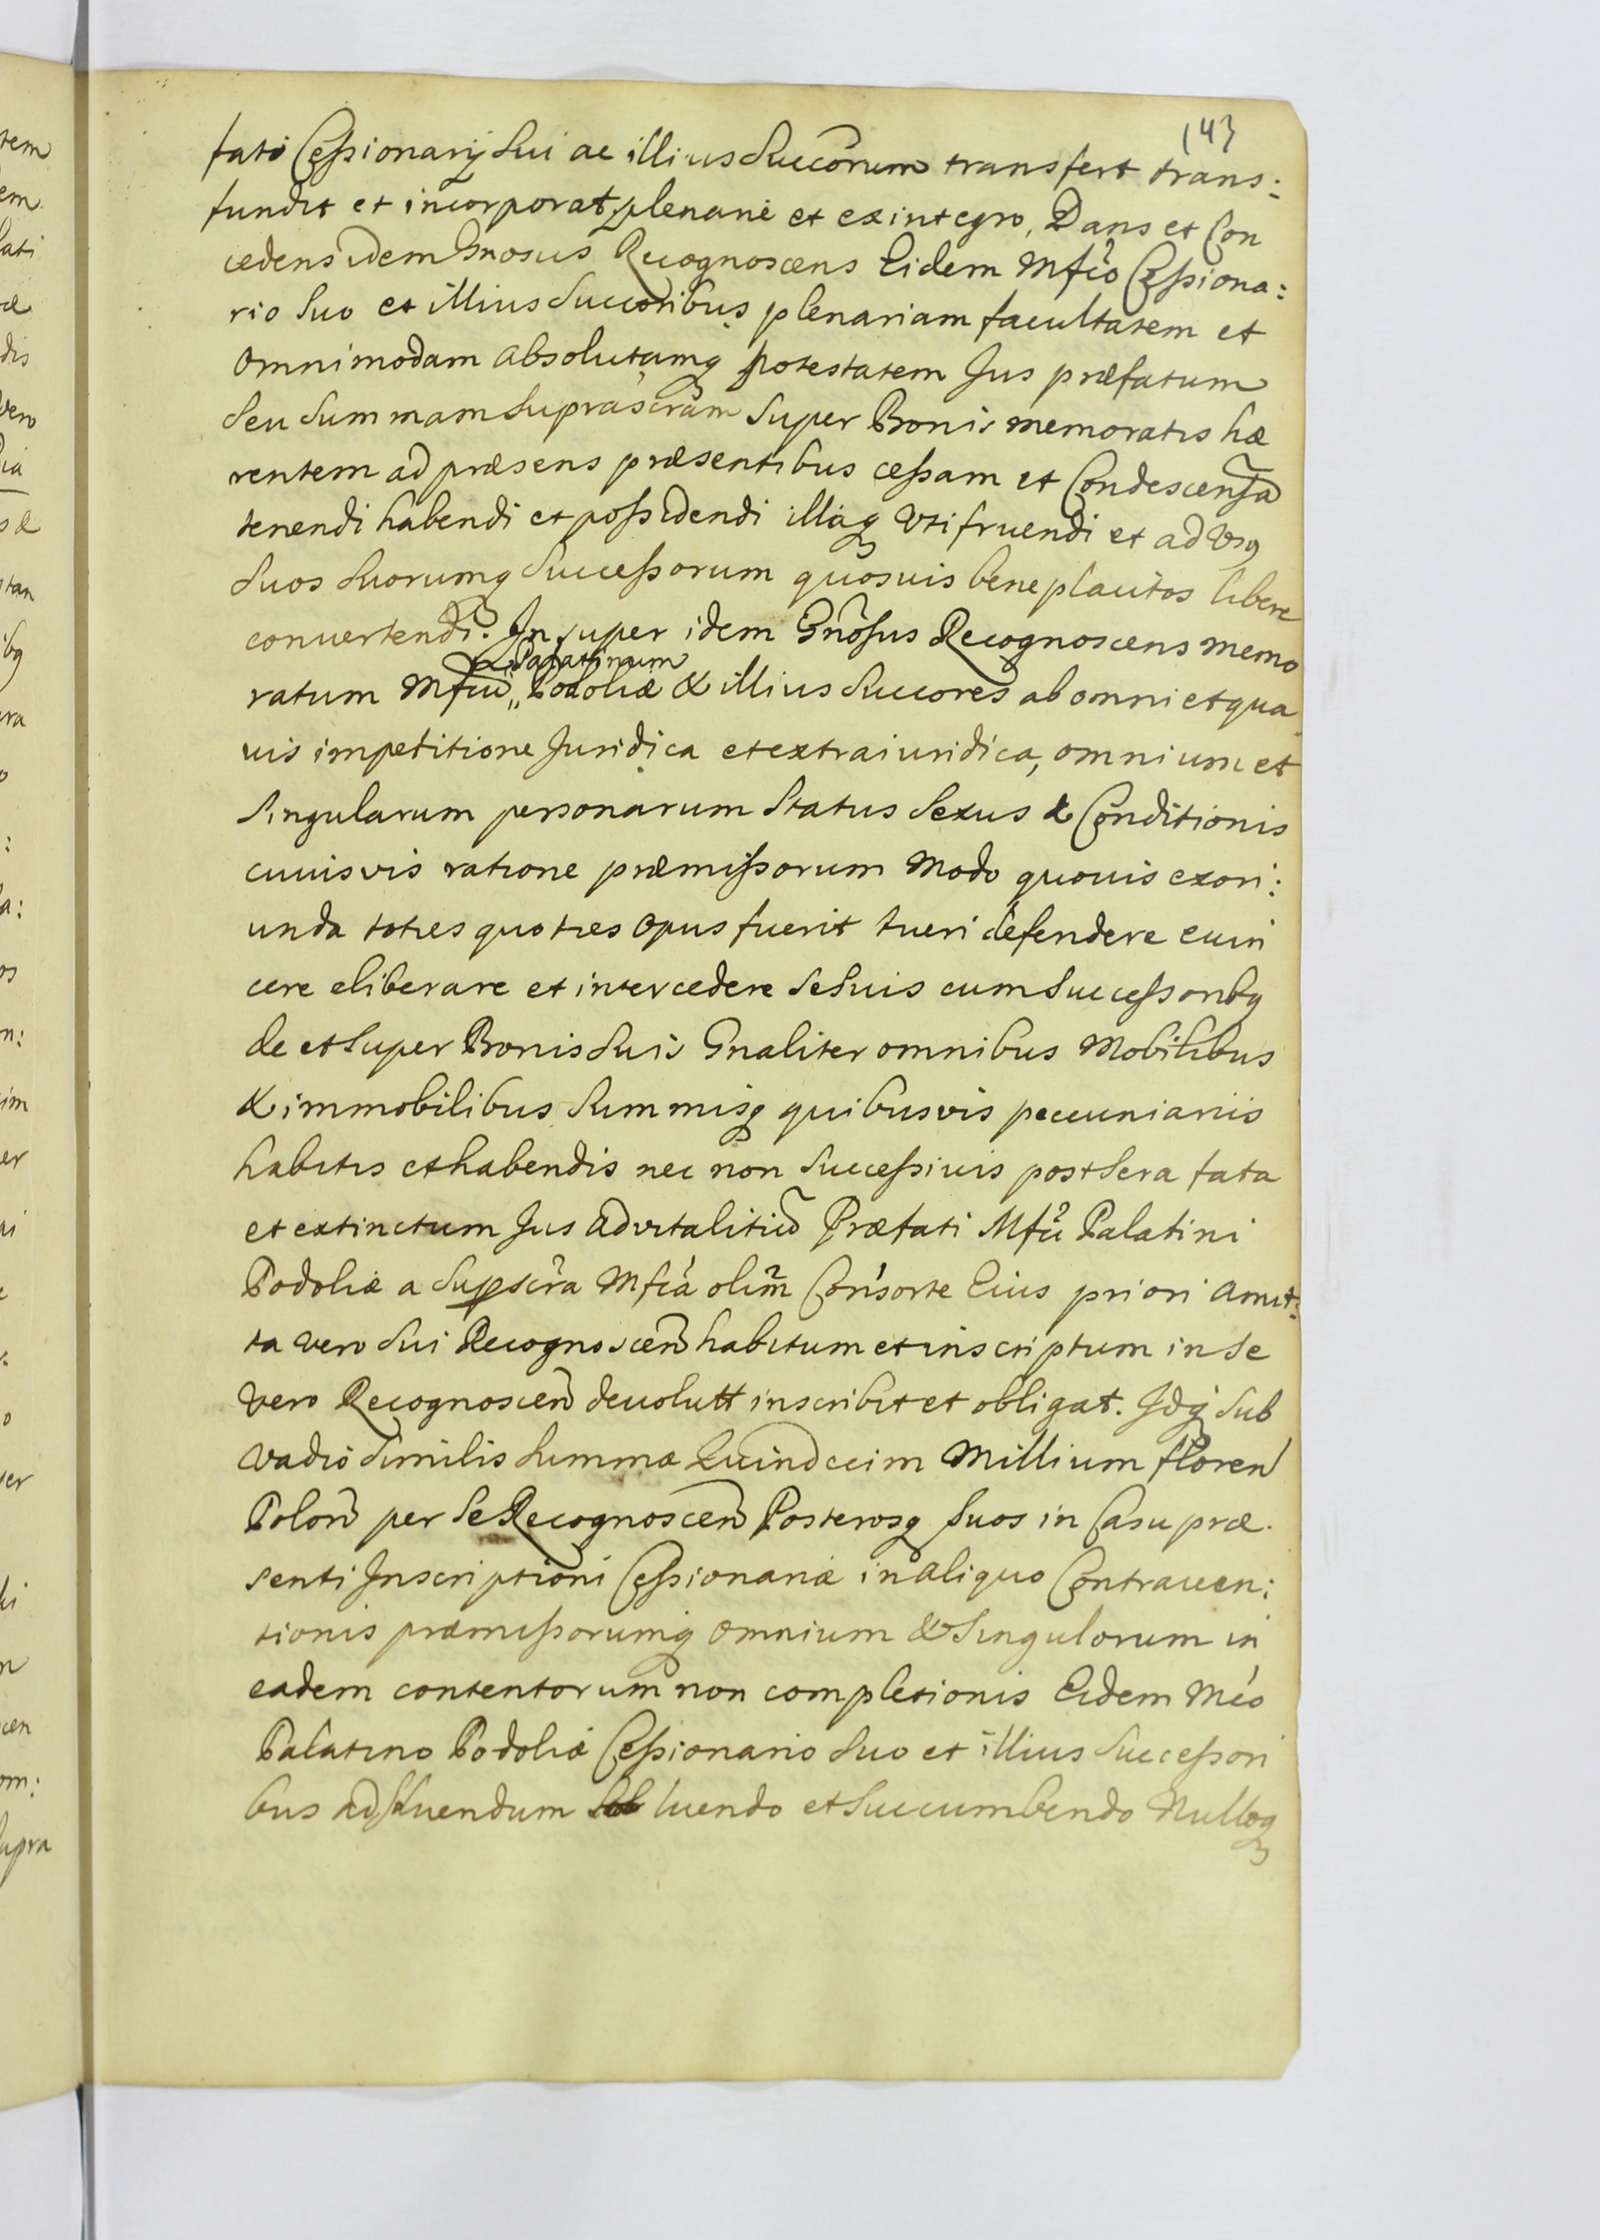 143
fati Cessionarij Sui ac illius Succorum transfert trans:
fundit et incorporat, plenarie et ex integro, Dans et Con
cedens idem Gnosus Recognoscens Eidem Mfico Cessiona:
rio Suo et illius Succoribus plenariam facultatem et
Omnimodam absolutamq potestatem Jus præfatum
Seu Summam Suprascram Super Bonis memoratis hæ
rentem ad præsens præsentibus cessam et Condescensa
tenendi habendi et possidendi illaq Vtifruendi et ad Vsq
Suos Suorumq Successorum quosuis beneplacitos libere
conuertendi. In super idem Gnosus Recognoscens memo
Palatinum
ratum Mficu Podoliæ & illius Succores ab omni et qua
uis impetitione Juridica et extraiuridica, omnium et
Singularum personarum Status Sexus & Conditionis
cuiusvis ratione præmissorum Modo quouis exori:
unda toties quoties Opus fuerit tueri defendere euin
cere eliberare et intercedere Se Suis cum Successoribq
de et Super Bonis Suis Gnaliter omnibus Mobilibus
& immobilibus Summisq quibusvis peccuniariis
habitis et habendis nec non Successiuis post Sera fata
et extinctum Jus aduitalitiu Præfati Mfci Palatini
Podoliæ a Supscra Mfca olim Consorte Eius priori Amit:
ta vero Sui Recognoscen habitum et inscriptum in Se
Vero Recognoscen deuolutt inscribit et obligat. Idq Sub
Vadio Similis Summæ Quindecim Millium floren
Polon per Se Recognoscen Posterosq Suos in Casu præ.
senti Inscriptioni Cessionariæ in aliquo Contrauen:
tionis præmissorumq Omnium & Singulorum in
eadem contentorum non completionis Eidem Mco
Palatino Podoliæ Cessionario Suo et illius Successori
bus ad luendum luendo et Succumbendo Nulloq